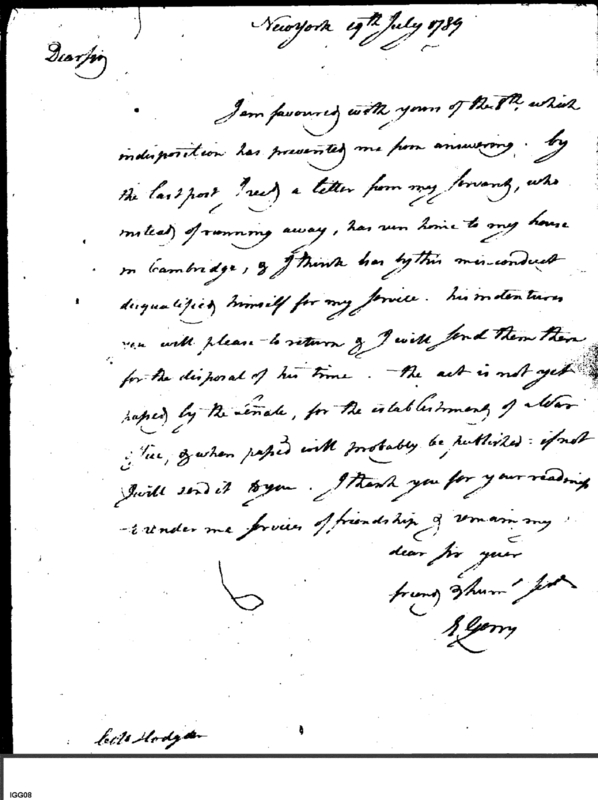 New York 19th July 1789
Dear sir
I am favoured with yours of the 8th which
indisposition has prevented me from answering. by
the last post, I recd a letter from my servant, who
instead of running away, has run home to my house
in Cambridge, & I think has by this mis-conduct
disqualified himself for my service. his indentures
you will please to return & I will send them there
for the disposal of his time. the act is not yet
passed by the senate, for the establishment of a War
office, & when passed will probably be published: if not
I will send it to you. I thank you for your readiness
to render me services of friendship & remain my
dear sir your
friend & huml Servt
E Gerry
Hodgdon
IGG08